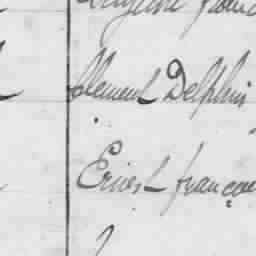 Clement Delphin
Ernest françoi